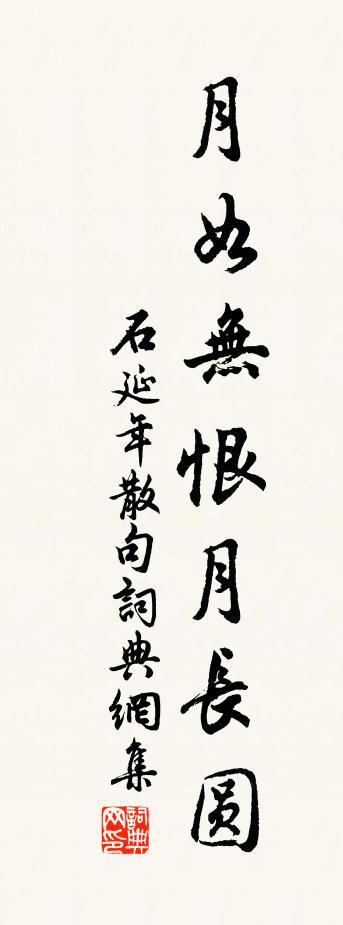 月如無恨月長圆
石延年散句詞典網集
詞典网印